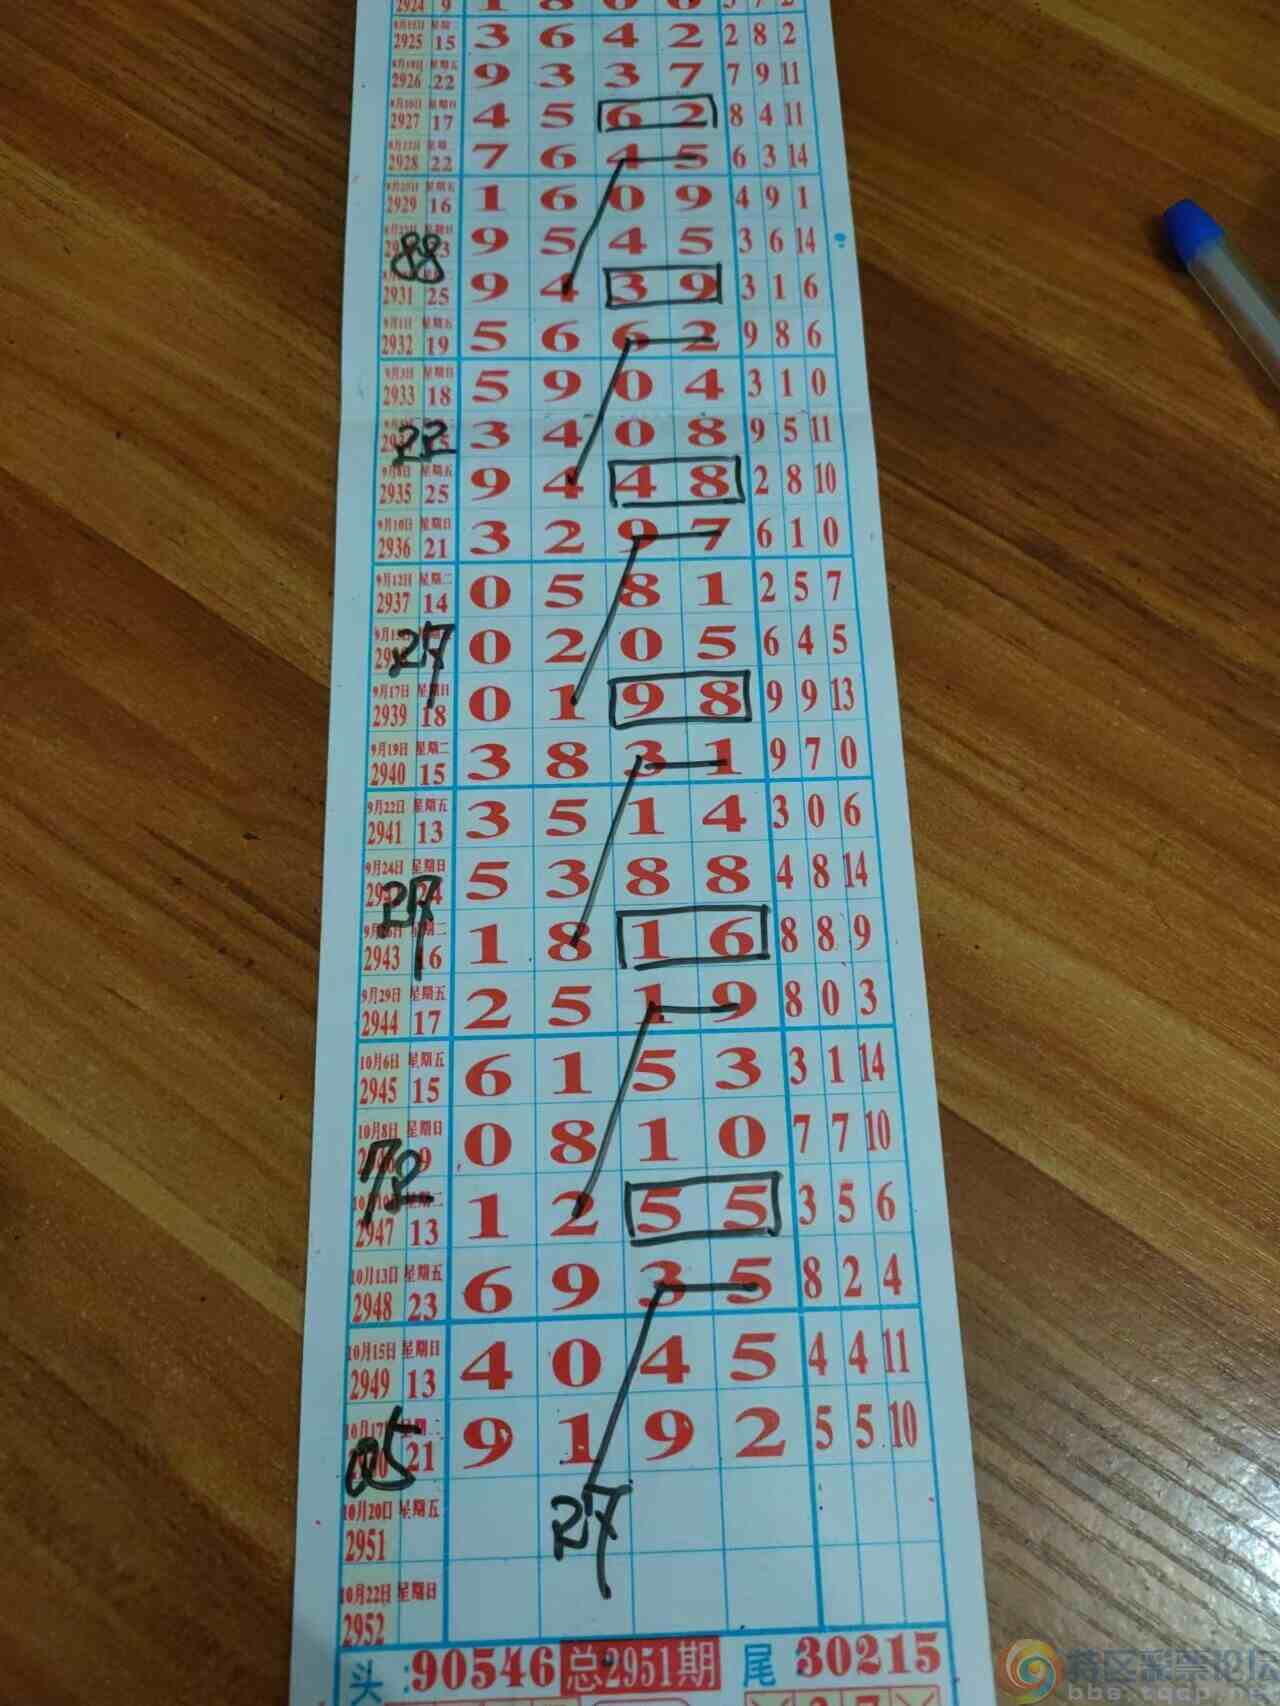 2924 9 1 8 0 0 3 7 2
2925 15 3 6 4 2 2 8 2
星期五
2926 22 9 3 3 7 7 9 11
2927 17 4 5 6 2 8 4 11
2928 22 7 6 4 5 6 3 14
2929 16 1 6 0 9 4 9 1
88 9 5 4 5 3 6 14
2931 25 9 4 3 9 3 1 6
9月1日 星期五
2932 19 5 6 6 2 9 8 6
9月3日 星期日
2933 18 5 9 0 4 3 1 0
22 3 4 0 8 9 5 11
9月8日 星期五
2935 25 9 4 4 8 2 8 10
9月10日 星期日
2936 21 3 2 9 7 6 1 0
9月12日 星期二
2937 14 0 5 8 1 2 5 7
27 0 2 0 5 6 4 5
9月17日 星期日
2939 18 0 1 9 8 9 9 13
9月19日 星期二
2940 15 3 8 3 1 9 7 0
9月22日 星期五
2941 13 3 5 1 4 3 0 6
9月24日 星期日
27 5 3 8 8 4 8 14
2943 16 1 8 1 6 8 8 9
9月29日 星期五
2944 17 2 5 1 9 8 0 3
10月6日 星期五
2945 15 6 1 5 3 3 1 14
10月8日 星期日
72 9 0 8 1 0 7 7 10
2947 13 1 2 5 5 3 5 6
10月13日 星期五
2948 23 6 9 3 5 8 2 4
10月15日 星期日
2949 13 4 0 4 5 4 4 11
10月17日
05 21 9 1 9 2 5 5 10
10月20日 星期五
2951
27
10月22日 星期日
2952
头:90546 总2951期 尾 30215
特区彩票论坛
bbs.tqcp.net